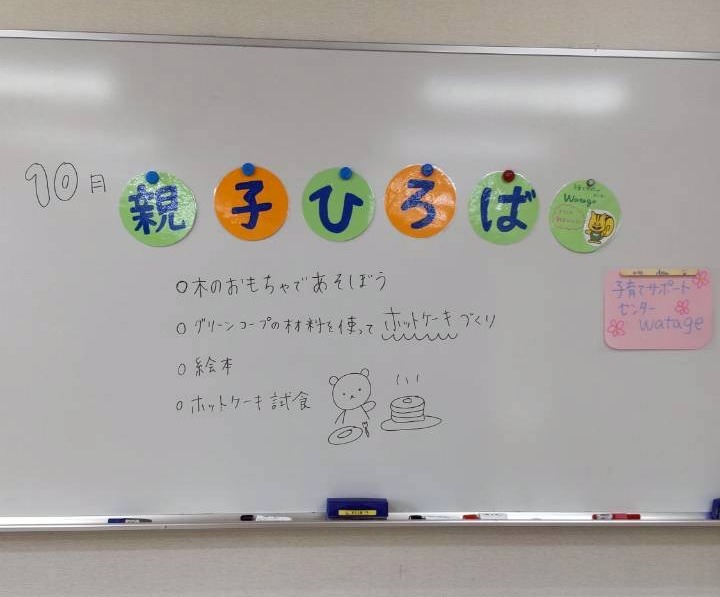 10月 親子ひろば
Watage
○木のおもちゃであそぼう
○グリーンコープの材料を使ってホットケーキづくり
○絵本
○ホットケーキ試食
子育てサポート
センター
watage